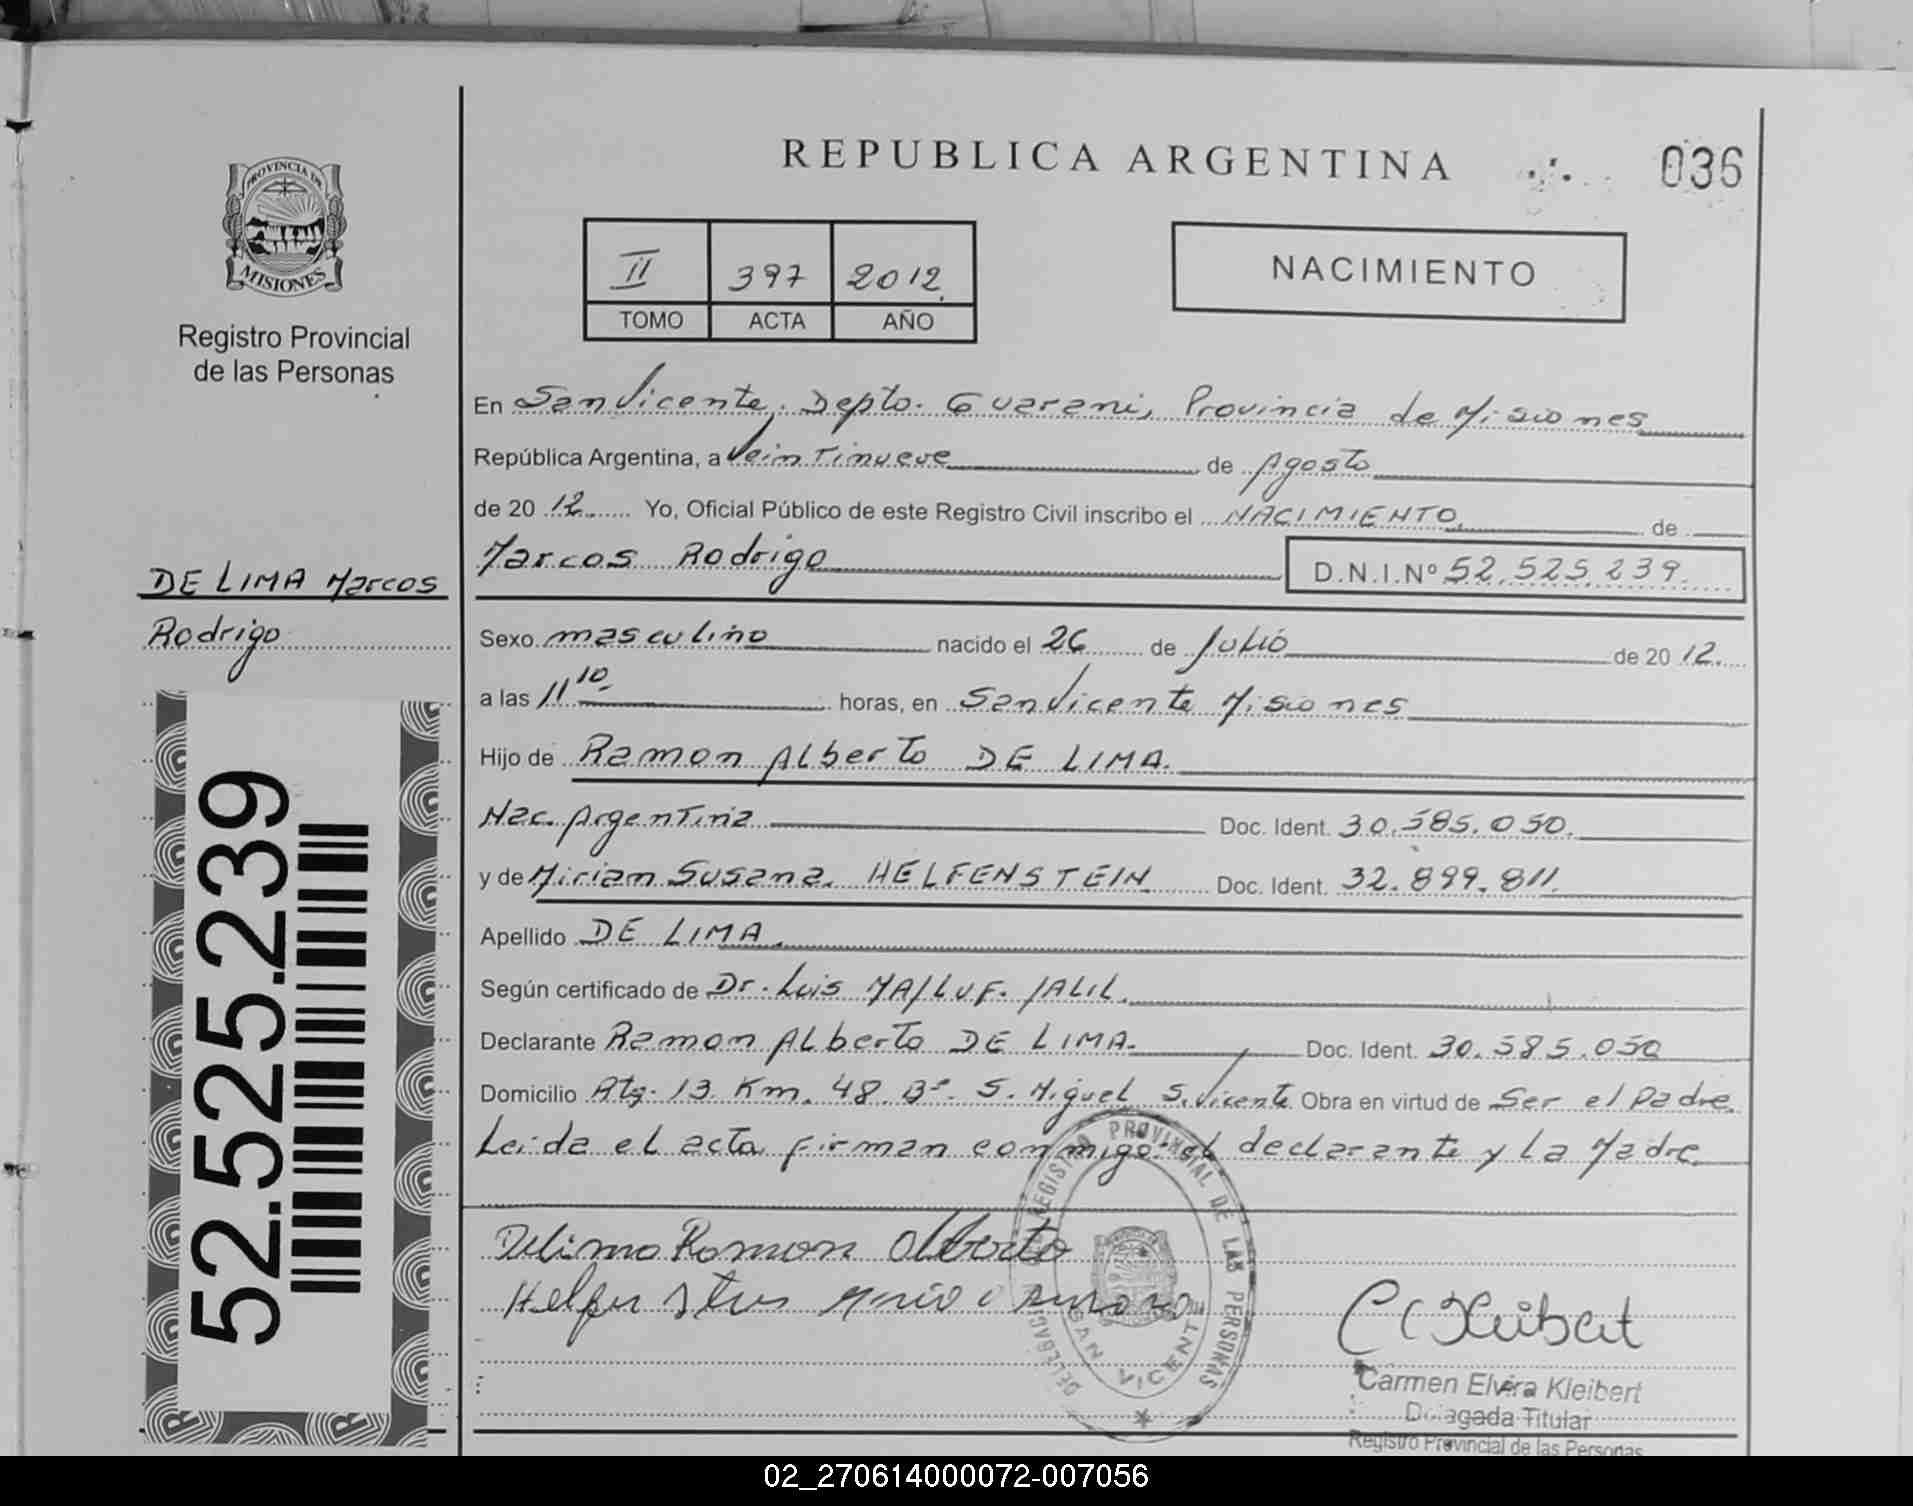 REPUBLICA ARGENTINA
036
PROVINCIA DE
MISIONES
Registro Provincial
de las Personas
II 397 2012
TOMO ACTA AÑO
NACIMIENTO
En San Vicente. Depto. Guarani, Provincia de Misiones
República Argentina, a Veintinueve de Agosto
de 20 12 Yo, Oficial Público de este Registro Civil inscribo el NACIMIENTO de
Marcos Rodrigo D.N.I.Nº 52.525.239
DE LIMA Marcos
Rodrigo
Sexo masculino nacido el 26 de Julio de 20 12.
a las 11 10 horas, en San Vicente Misiones
Hijo de Ramon Alberto DE LIMA.
Nac. Argentina Doc. Ident. 30.585.050.
y de Miriam Susana. HELFENSTEIN Doc. Ident. 32.899.811.
Apellido DE LIMA.
Según certificado de Dr. Luis MAJLUF. JALIL.
Declarante Ramon Alberto DE LIMA. Doc. Ident. 30.585.050
Domicilio km. 48. Bº. S. Miguel S. Vicente Obra en virtud de Ser el Padre.
Leida el acta firman conmigo: el declarante y la Madre
52.525.239
Delima Ramon Alberto
REGISTRO PROVINCIAL DE LAS PERSONAS
SAN VICENTE
C Kleibert
Carmen Elvira Kleibert
Delegada Titular
Registro Provincial de las Personas
02_270614000072-007056